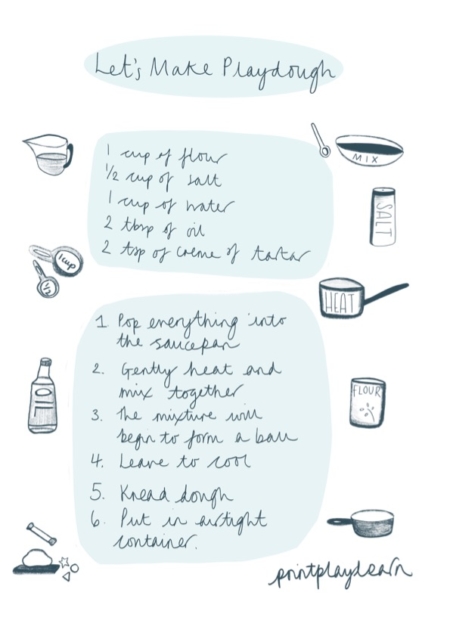 Let's Make Playdough
1 cup of flour
MIX
1/2 cup of salt
1 cup of water
SALT
2 tbsp of oil
2 tsp of creme of tartar
1 cup
1/2
HEAT
1 Pop everything into
the saucepan
2. Gently heat and
mix together
FLOUR
OIL
3. The mixture will
begin to form a ball
4. Leave to cool
5. Knead dough
6. Put in airtight
container.
printplaylearn